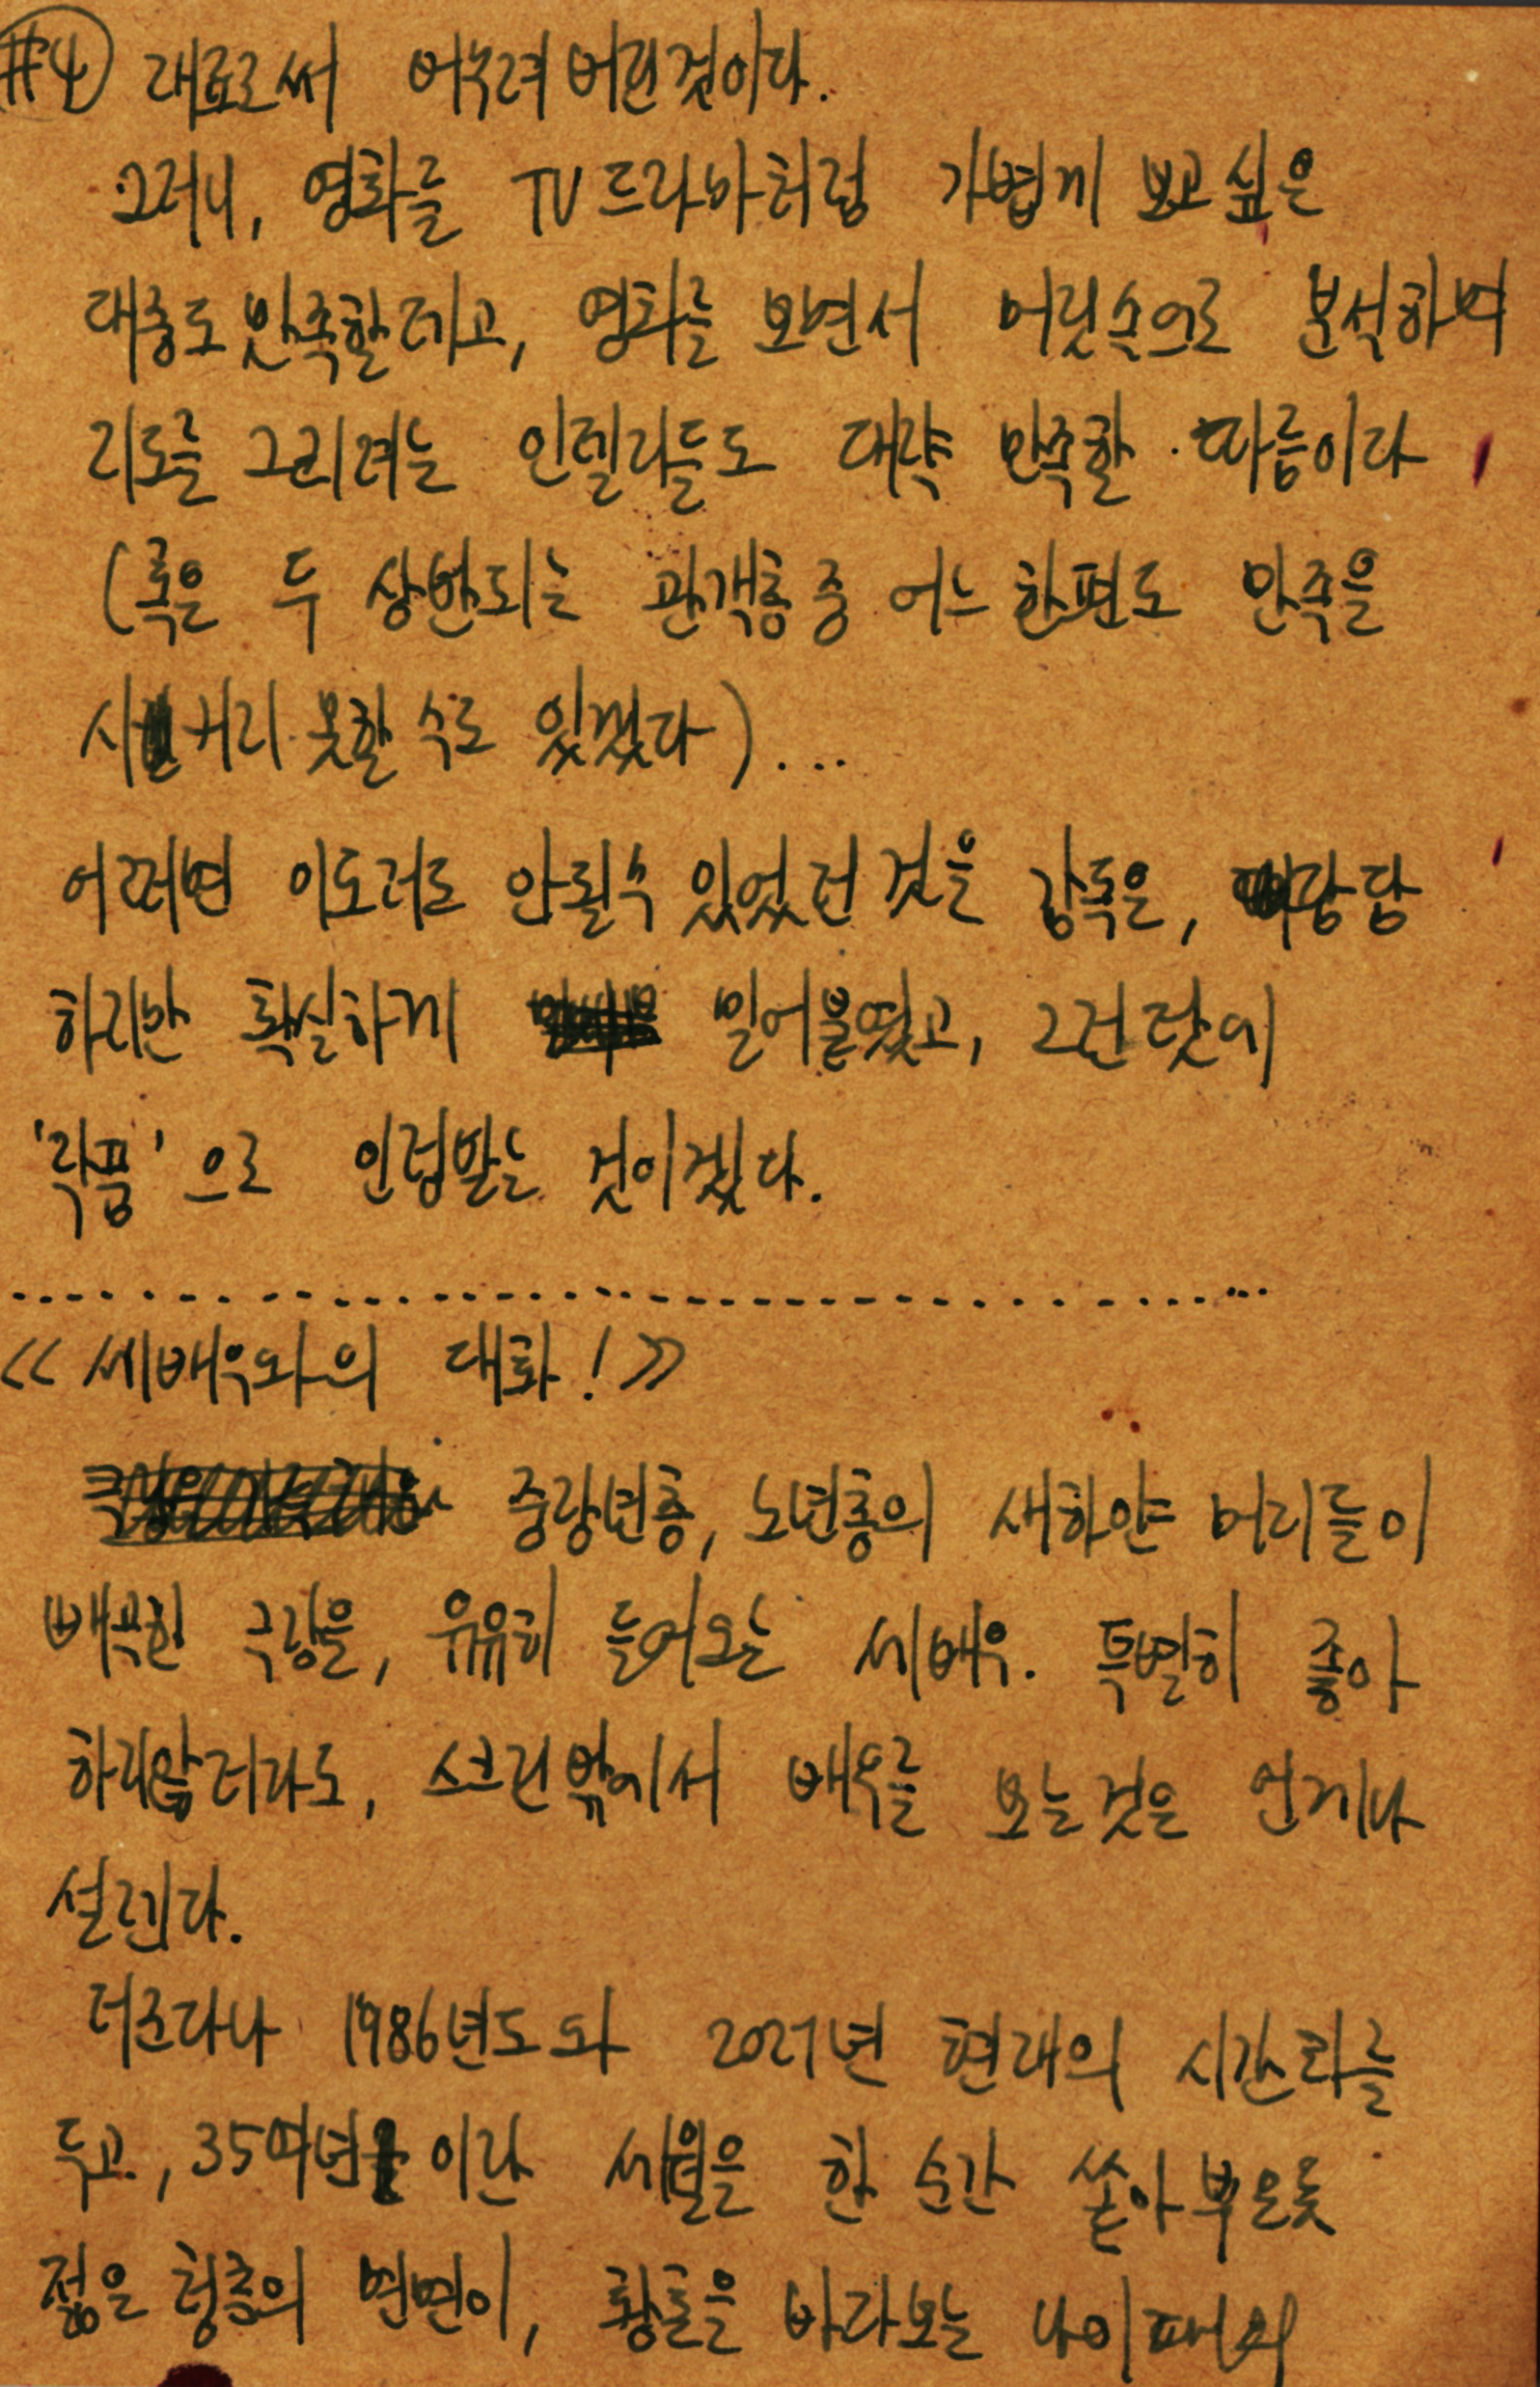 #4 재료로써 버무려 버린 것이다.
그러니, 영화를 TV 드라마처럼 가볍게 보고 싶은
대중도 만족할 테고, 영화를 보면서 머릿속으로 분석하며
지도를 그리려는 인텔리들도 대략 만족할 따름이다
(혹은 두 상반되는 관객층 중 어느 한편도 만족을
시키지 못할 수도 있겠다)...
어쩌면 이도저도 안될 수 있었던 것을 감독은, 담담
하지만 확실하게 밀어붙였고, 그건 탓에
'작품'으로 인정받는 것이겠다.
<<세배우와의 대화!>>
중장년층, 노년층의 새하얀 머리들이
빼곡한 극장을, 유유히 들어오는 세배우. 특별히 좋아
하지않더라도, 스크린 밖에서 배우를 보는 것은 언제나
설렌다.
더군다나 1986년도와 2021년 현재의 시간차를
두고, 35여년이란 세월을 한 순간 쏟아 부은듯
젊은 청춘의 면면이, 황혼을 바라보는 나이대의